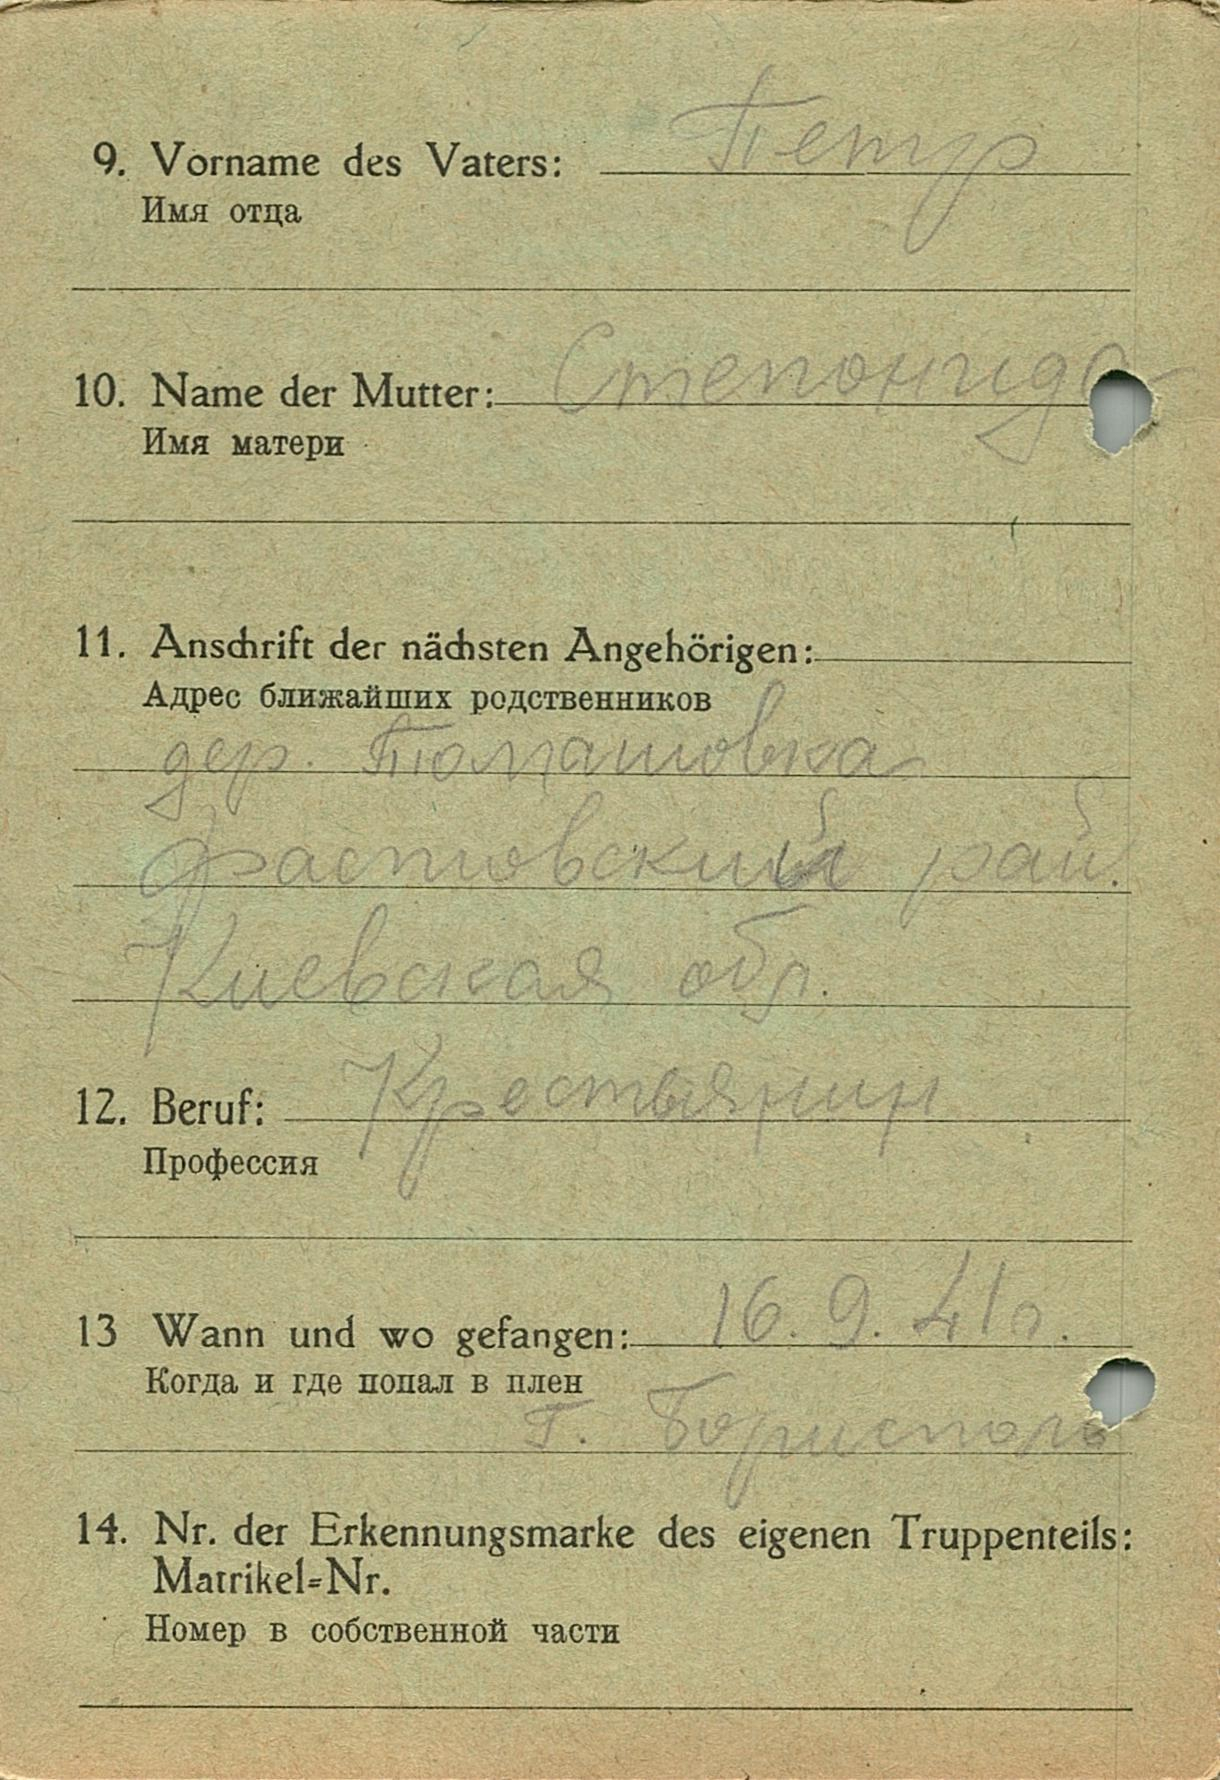 9. Vorname des Vaters: Петр
Имя отца
10. Name der Mutter: Степонида
Имя матери
11. Anschrift der nächsten Angehörigen:
Адрес ближайших родственников
дер. Томашовка
Фастовский рай.
Киевская обл.
12. Beruf: Крестьянин
Профессия
13 Wann und wo gefangen: 16. 9. 41г.
Когда и где попал в плен
г. Борисполь
14. Nr. der Erkennungsmarke des eigenen Truppenteils:
Matrikel=Nr.
Номер в собственной части